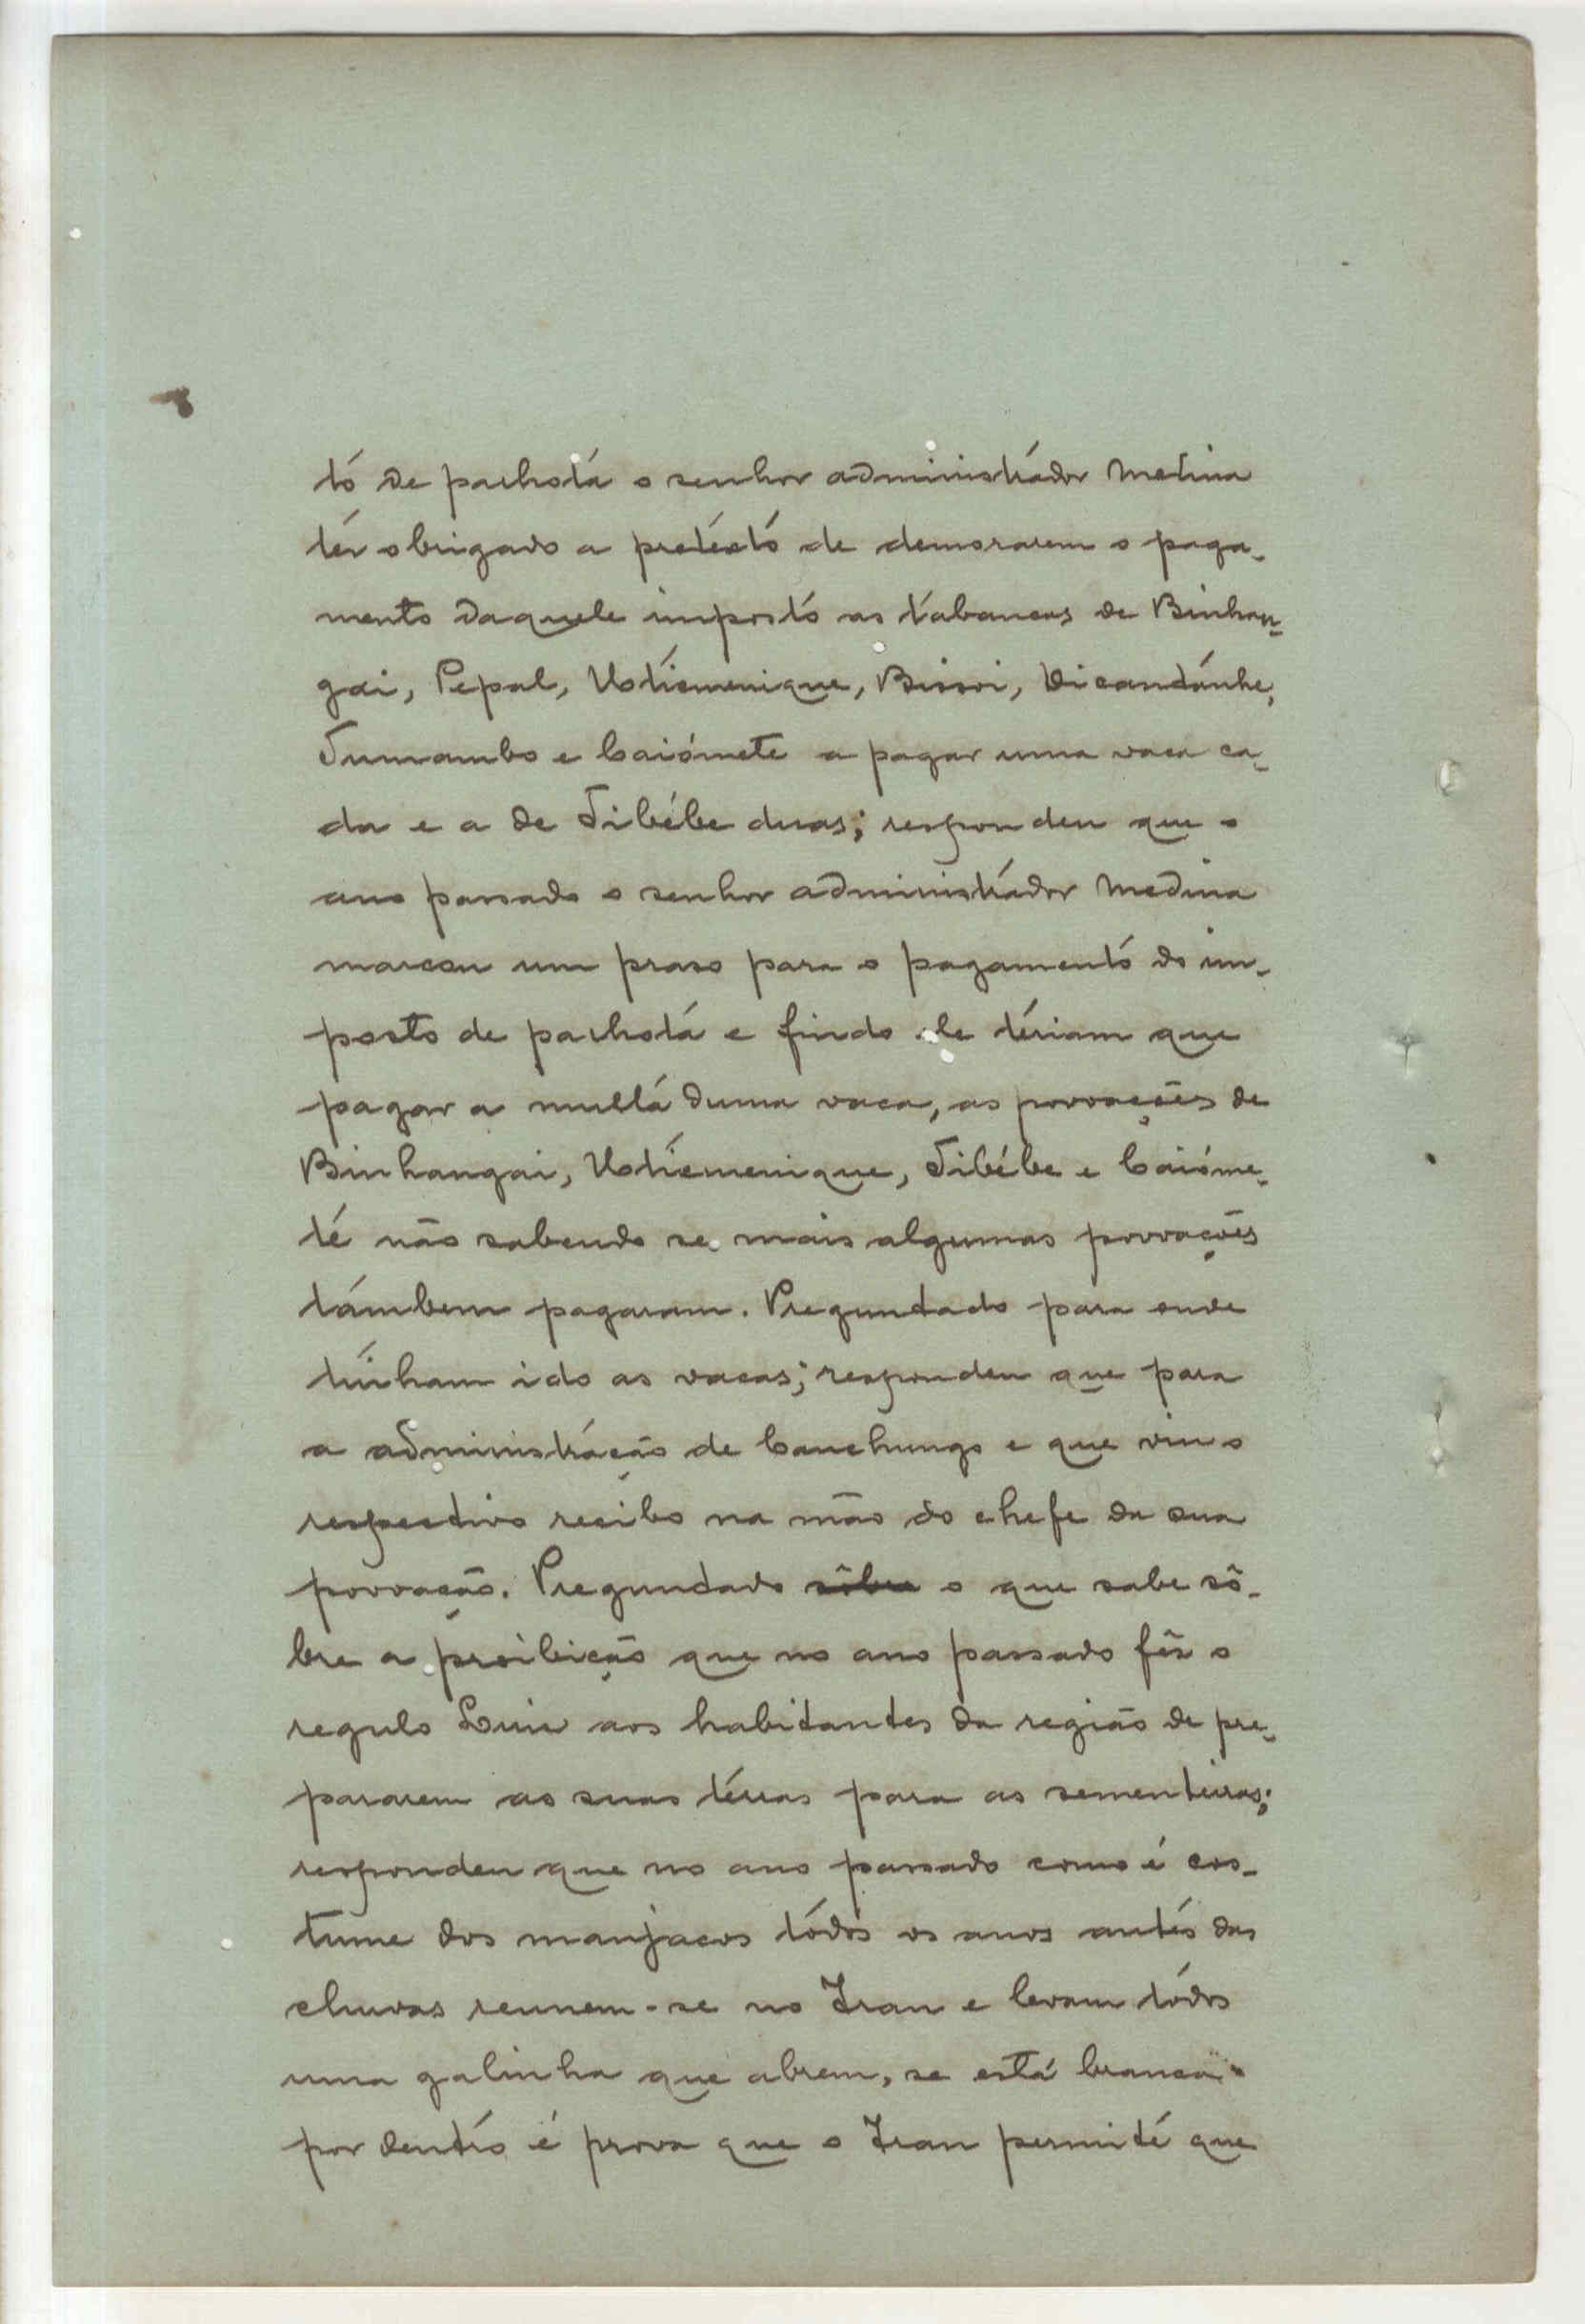 tó de palhotá o senhor administrádor Medina
tér obrigado a pretéxtó de demorarem o paga-
mento daquele impostó as tabancas de Binhan-
gai, Pepal, Utiemenique, Bissoi, Dicandánhe,
Tumambo e Caiómete a pagar uma vaca ca-
da e a de Tibébe duas; respondeu que o
ano passado o senhor administrádor Medina
marcou um praso para o pagamentó do im-
posto de palhotá e findo ele tériam que
pagar a multá duma vaca, as povoações de
Binhangai, Utiemenique, Tibébe e Caióme-
té não sabendo se mais algumas povoações
támbem pagaram. Preguntado para onde
tinham ido as vacas; respondeu que para
a administráção de Canchungo e que viu o
respectivo recibo na mão do chefe da sua
povoação. Preguntado sôbre o que sabe sô-
bre a proibição que no ano passado fês o
regulo Luiz aos habitantes da região de pre-
pararem as suas térras para as sementeiras;
respondeu que no ano passado como é cos-
tume dos manjacos tódos os anos antés das
chuvas reunem-se no Iran e levam tódos
uma galinha que abrem, se está branca
por dentro é prova que o Iran permité que